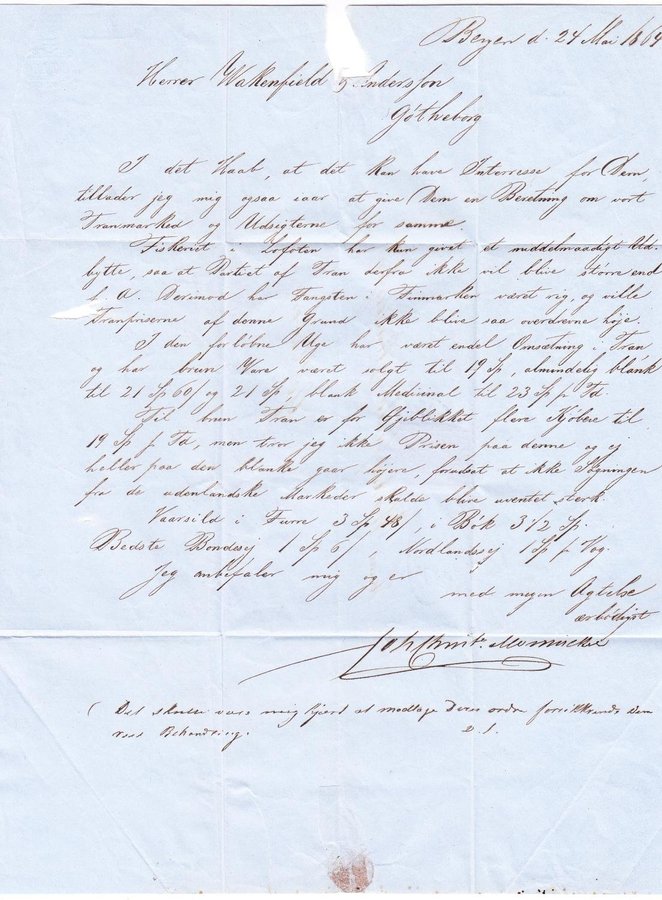 Bergen d. 24 Mai 1869
Herrer Wakenfield & Andersson
Gøtheborg
I det Haab, at det kan have Interresse for Dem,
tillader jeg mig ogsaa iaar at give Dem en Beretning om vort
Tranmarked og Udsigterne for samme.
Fiskeriet i Lofoten har kun givet et middelmaadigt Ud-
bytte, saa at Partiet af Tran derfra ikke vil blive større end
f. A. Derimod har Fangsten i Finmarken været rig, og ville
Tranpriserne af denne Grund ikke blive saa overdrevne høje.
I den forløbne Uge har været endel Omsætning i Tran
og har brun Vare været solgt til 19 Sp, almindelig blank
til 21 Sp 60, og 21 Sp, blank Medicinal til 23 Sp p Td.
Til brun Tran er for Øjeblikket flere Kjøbere til
19 Sp p Td, men tror jeg ikke Prisen paa denne og ej
heller paa den blanke gaar højere, forudsat at ikke Søgningen
fra de udenlandske Markeder skulde blive uventet sterk.
Vaarsild i Furre 3 Sp 48/, i Bøk 3 1/2 Sp.
Bedste Bondesej 1 Sp 6/, Nordlandssej 1 Sp p Vog.
Jeg anbefaler mig og er
med megen Agtelse
ærbødigst
Joh Christ.
Det skulde være mig kjært at modtage Deres ordre forsikkrende Dem
reel Behandling. D. S.